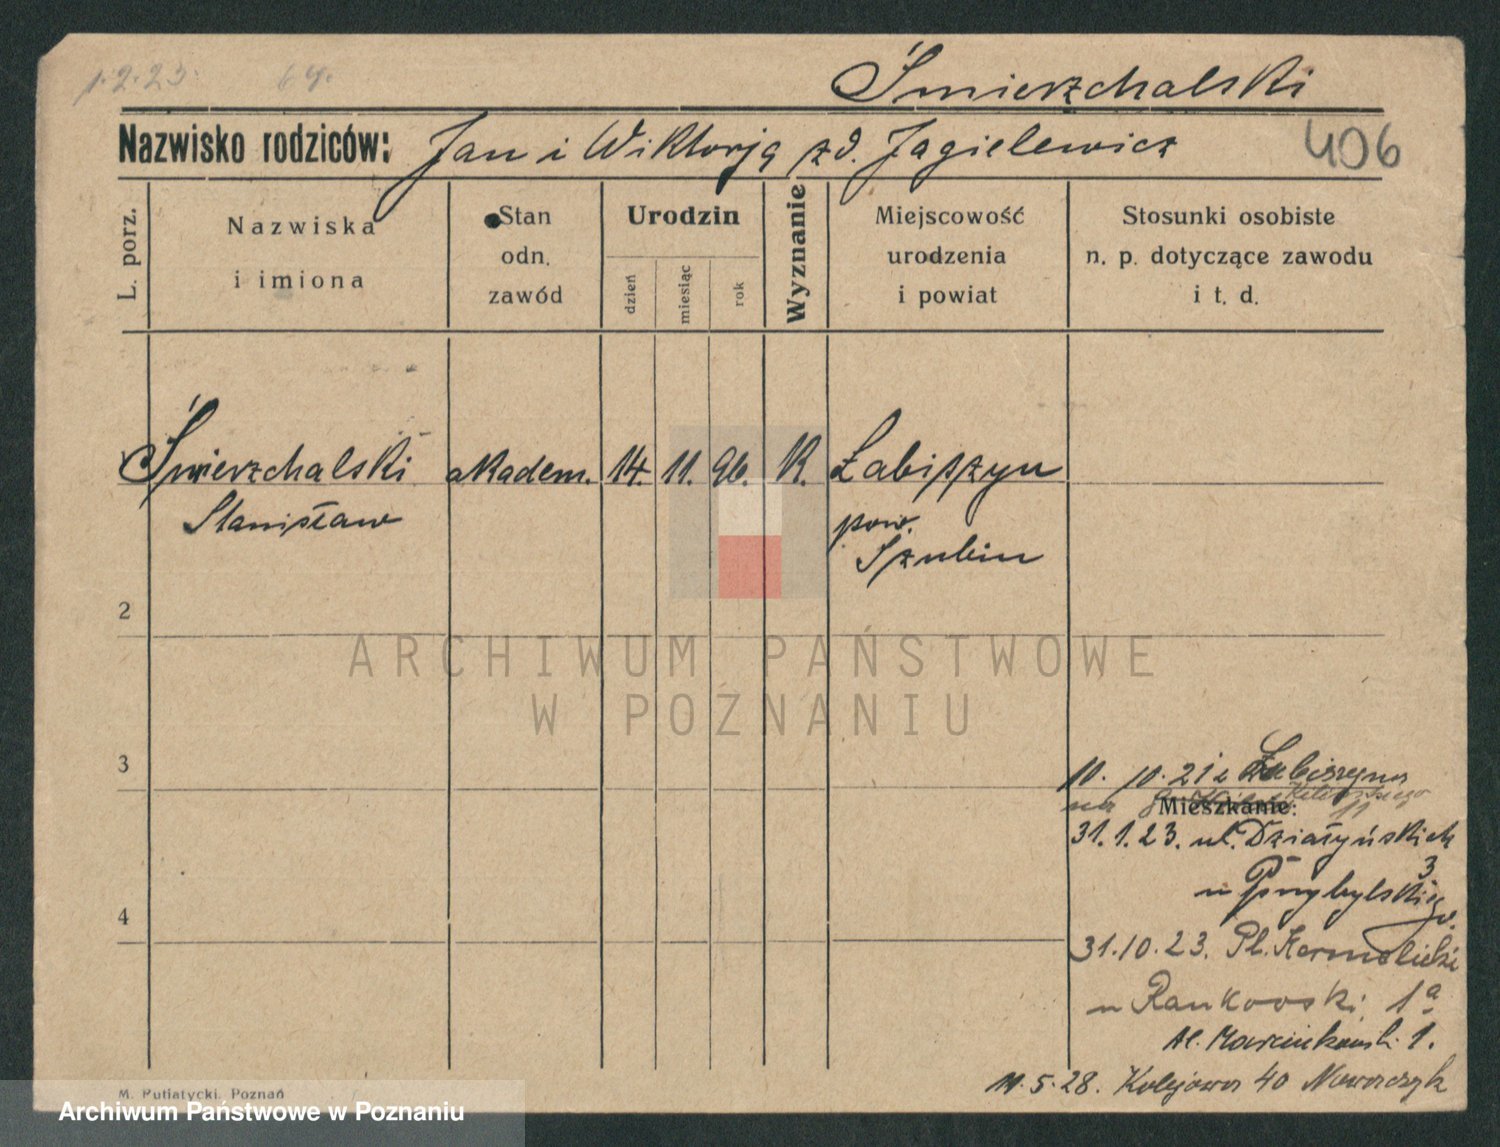 1.2.23. 64.
Śmierzchalski
Nazwisko rodziców: Jan i Wiktorja zd. Jagielewicz 406
L. porz.
Nazwiska
i imiona
Stan
odn.
zawód
Urodzin
dzień
miesiąc
rok
Wyznanie
Miejscowość
urodzenia
i powiat
Stosunki osobiste
n. p. dotyczące zawodu
i t. d.
Śmierzchalski akadem. 14. 11. 96. K. Łabiszyn
Stanisław pow.
Szubin
2
ARCHIWUM PAŃSTWOWE
W POZNANIU
3
10. 10. 21 z Łabiszyna
na
Mieszkanie: 11
31.1.23. ul. Działyńskich
3
u Przybylskiego.
4
31.10.23. Pl. Karmelicki
u Rankowski 1a
Al. Marcinkowsk. 1.
11.5.28. Kolejowa 40 Nawrczyk
M. Putiatycki, Poznań
Archiwum Państwowe w Poznaniu